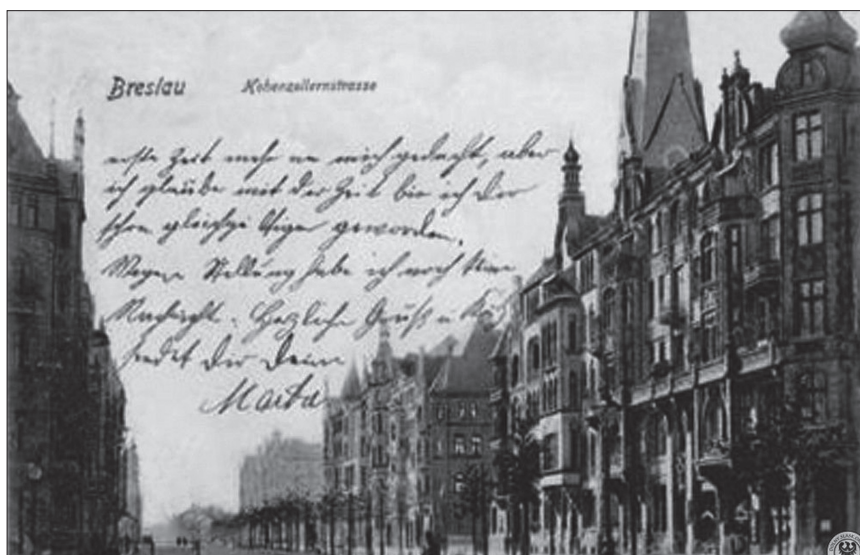 Breslau Hohenzollernstrasse
erste Zeit mehr an mich gedacht, aber
ich glaube mit der Zeit bin ich Dir
schon gleichgültiger geworden.
Wegen Stellung habe ich noch keine
Nachricht. Herzliche Gruß u Kuß
sendet Dir Deine
Marta